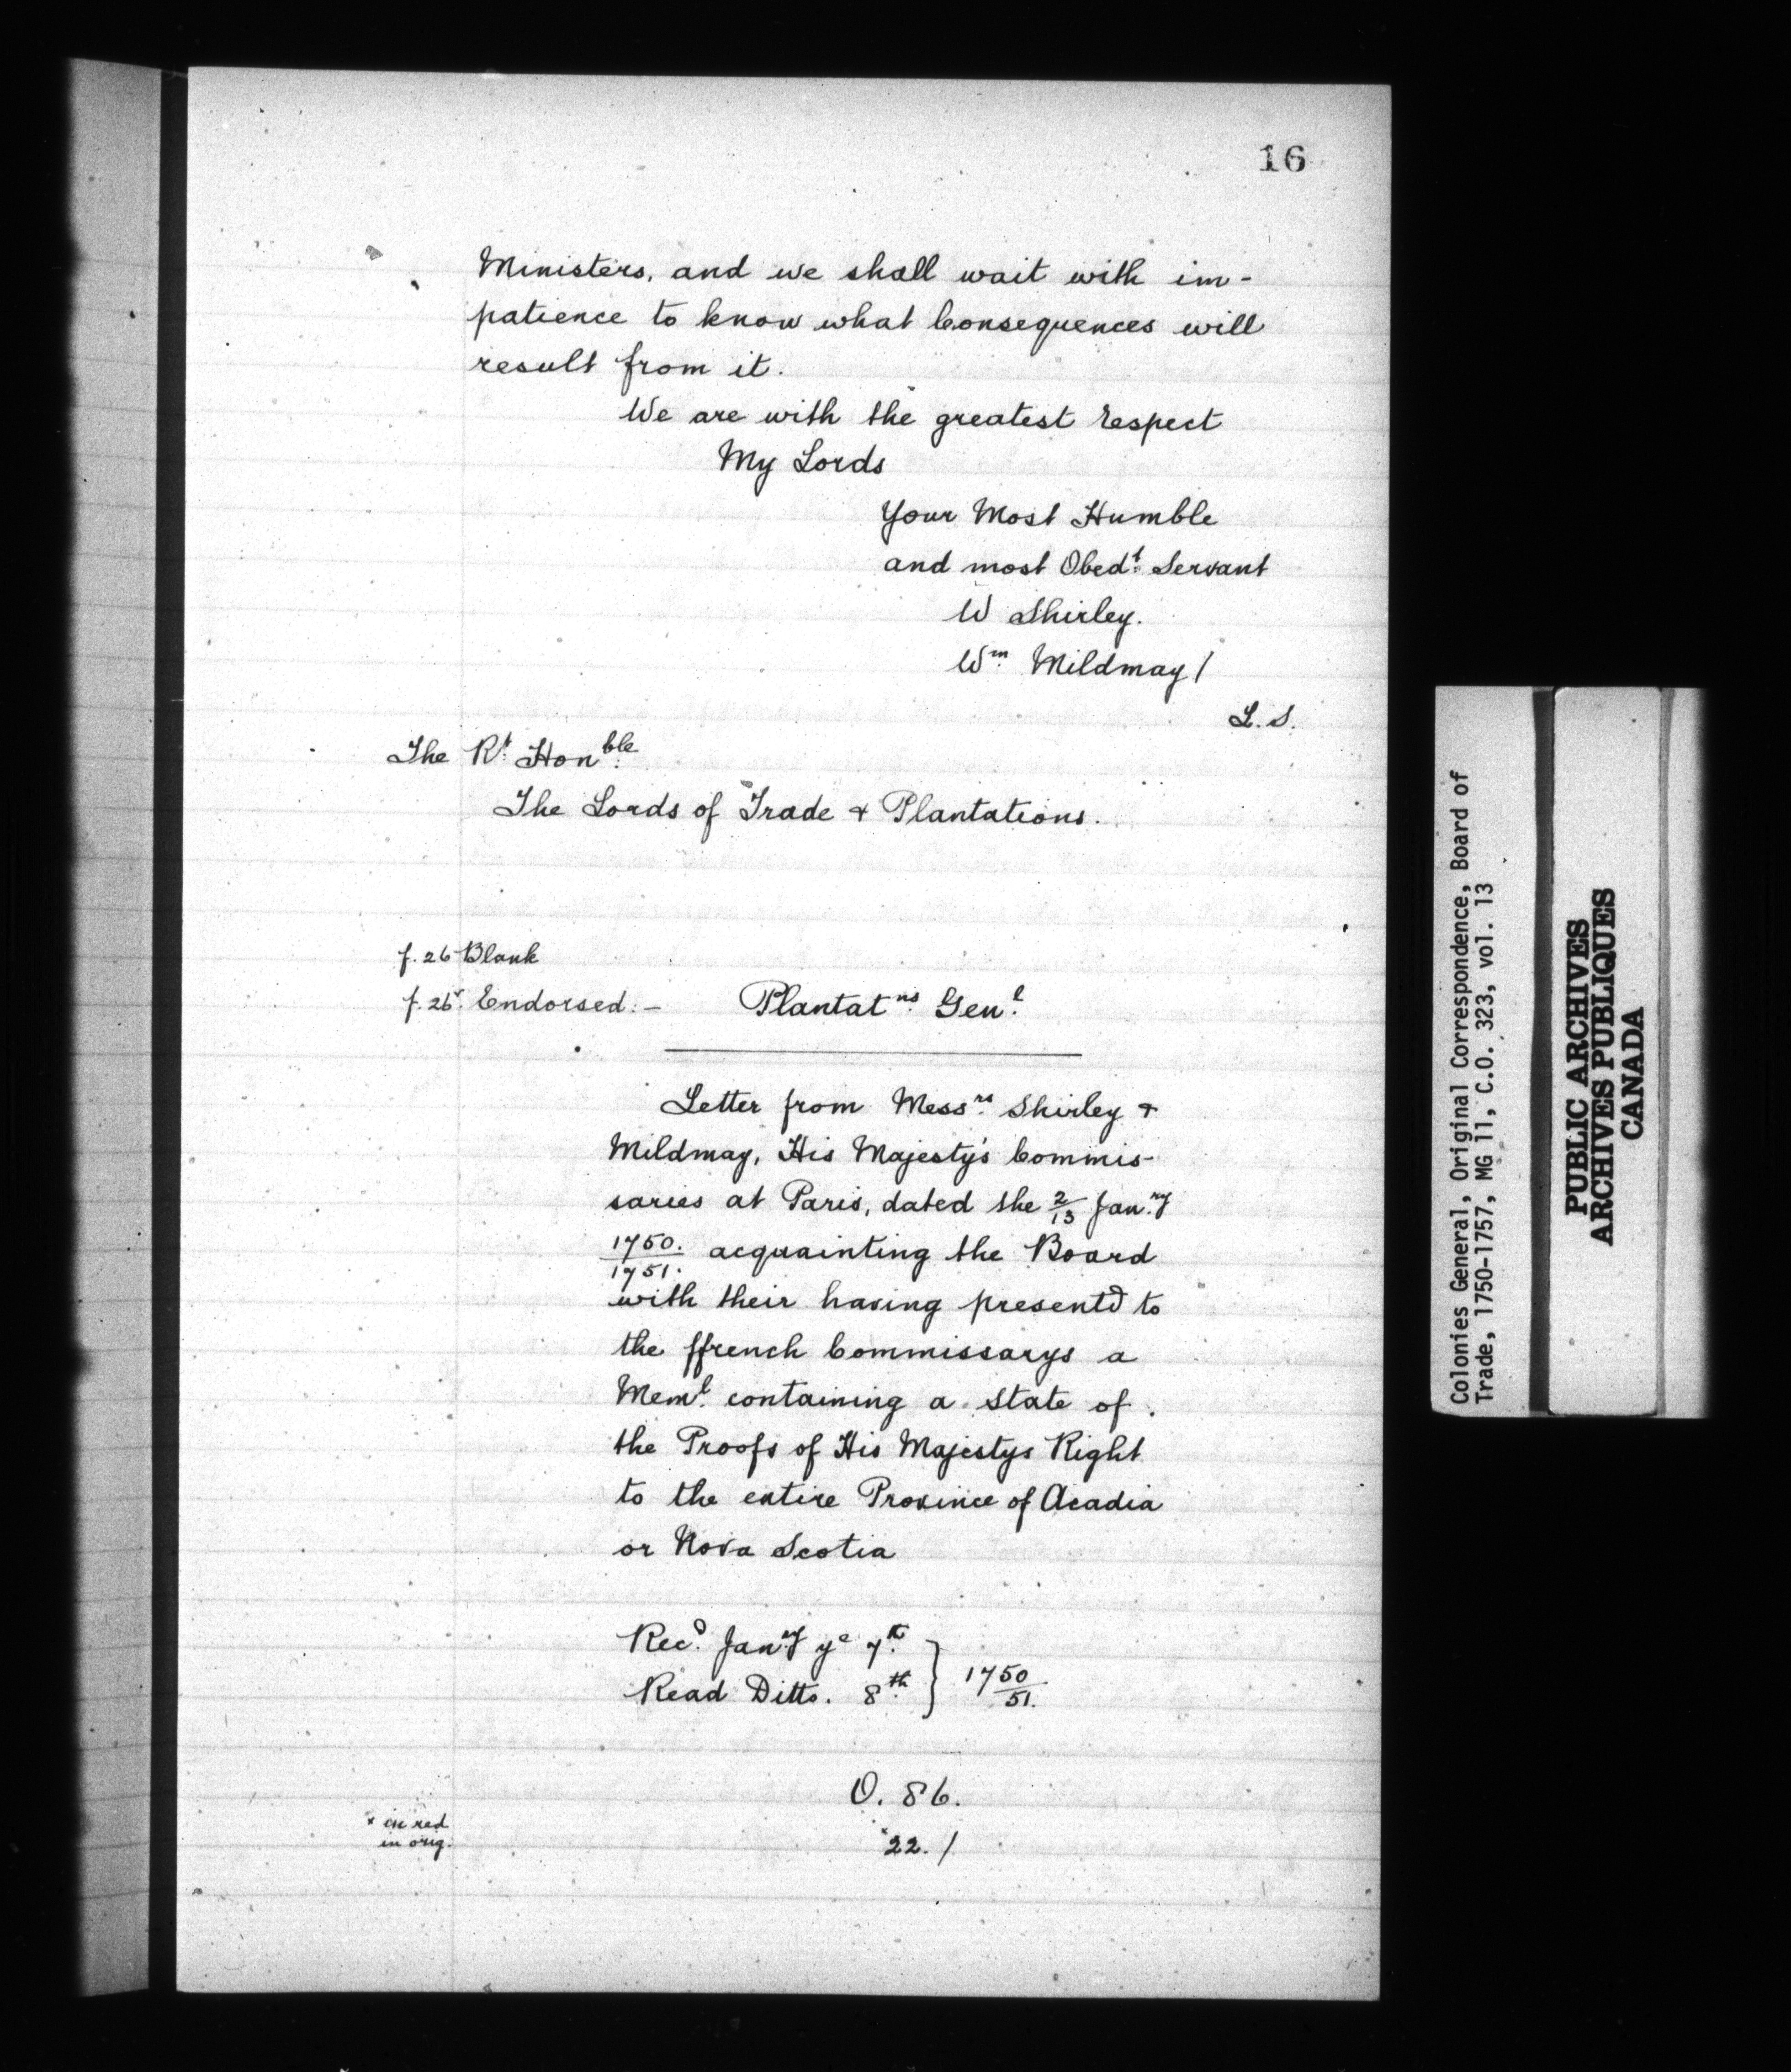 16
Ministers, and we shall wait with im-
patience to know what Consequences will
result from it.
We are with the greatest respect
My Lords
Your Most Humble
and most Obedt. Servant
W Shirley.
Wm. Mildmay /
L. S.
The Rt. Honble.
The Lords of Trade & Plantations.
f. 26 Blank
f. 26v. Endorsed:- Plantatns. Genl.
Letter from Messrs. Shirley &
Mildmay, His Majesty's Commis-
saries at Paris, dated the 2/13 Janry
1750./1751. acquainting the Board
with their having presentd to
the ffrench Commissarys a
Meml. containing a State of
the Proofs of His Majestys Right
to the entire Province of Acadia
or Nova Scotia
Recd. Janry ye 7th.
Read Ditto. 8th. } 1750/51.
O. 86.
x in red
in orig.
x22. /
Colonies General, Original Correspondence, Board of
Trade, 1750-1757, MG 11, C.O. 323, vol. 13
PUBLIC ARCHIVES
ARCHIVES PUBLIQUES
CANADA